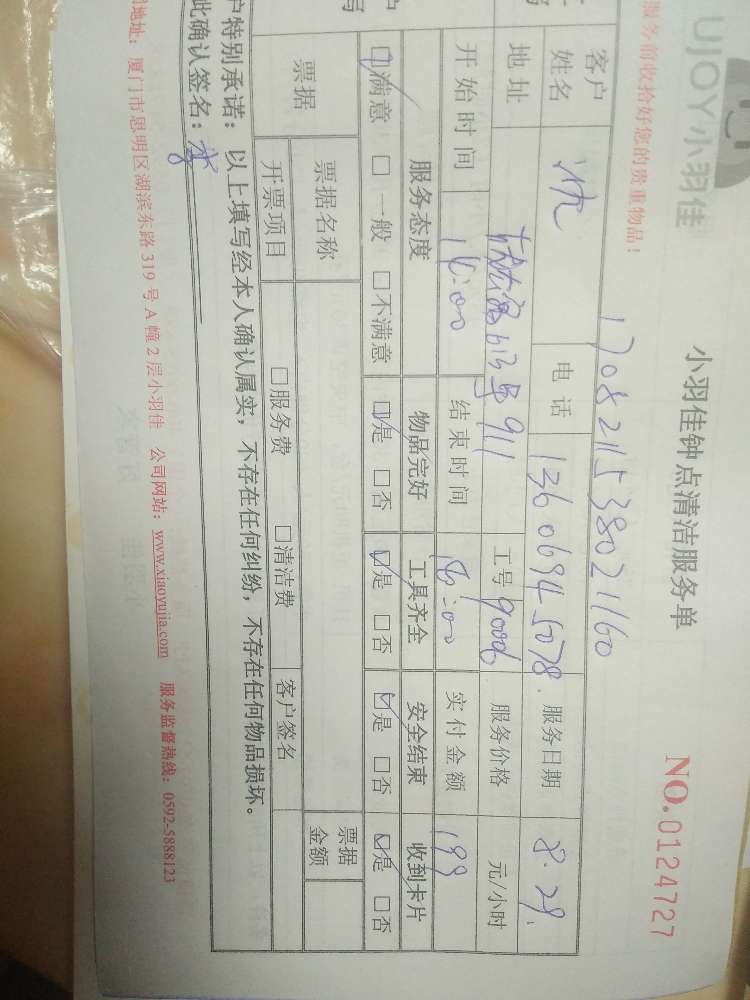 UJOY小羽佳
小羽佳钟点清洁服务单
NO.0124727
服务前收拾好您的贵重物品！
1708211538021160
客户姓名 沈 电话 13606945078. 服务日期 8.29.
地址 613号911 工号 9006 服务价格 元/小时
开始时间 16:00 结束时间 18:00 实付金额 199
服务态度 物品完好 工具齐全 安全结束 收到卡片
☑满意 □一般 □不满意 ☑是 □否 ☑是 □否 ☑是 □否 ☑是 □否
票据 票据名称 票据金额
开票项目 □服务费 □清洁费 客户签名
户特别承诺：以上填写经本人确认属实，不存在任何纠纷，不存在任何物品损坏。
此确认签名：
地址：厦门市思明区湖滨东路319号A幢2层小羽佳 公司网站：www.xiaoyujia.com 服务监督热线：0592-5888123